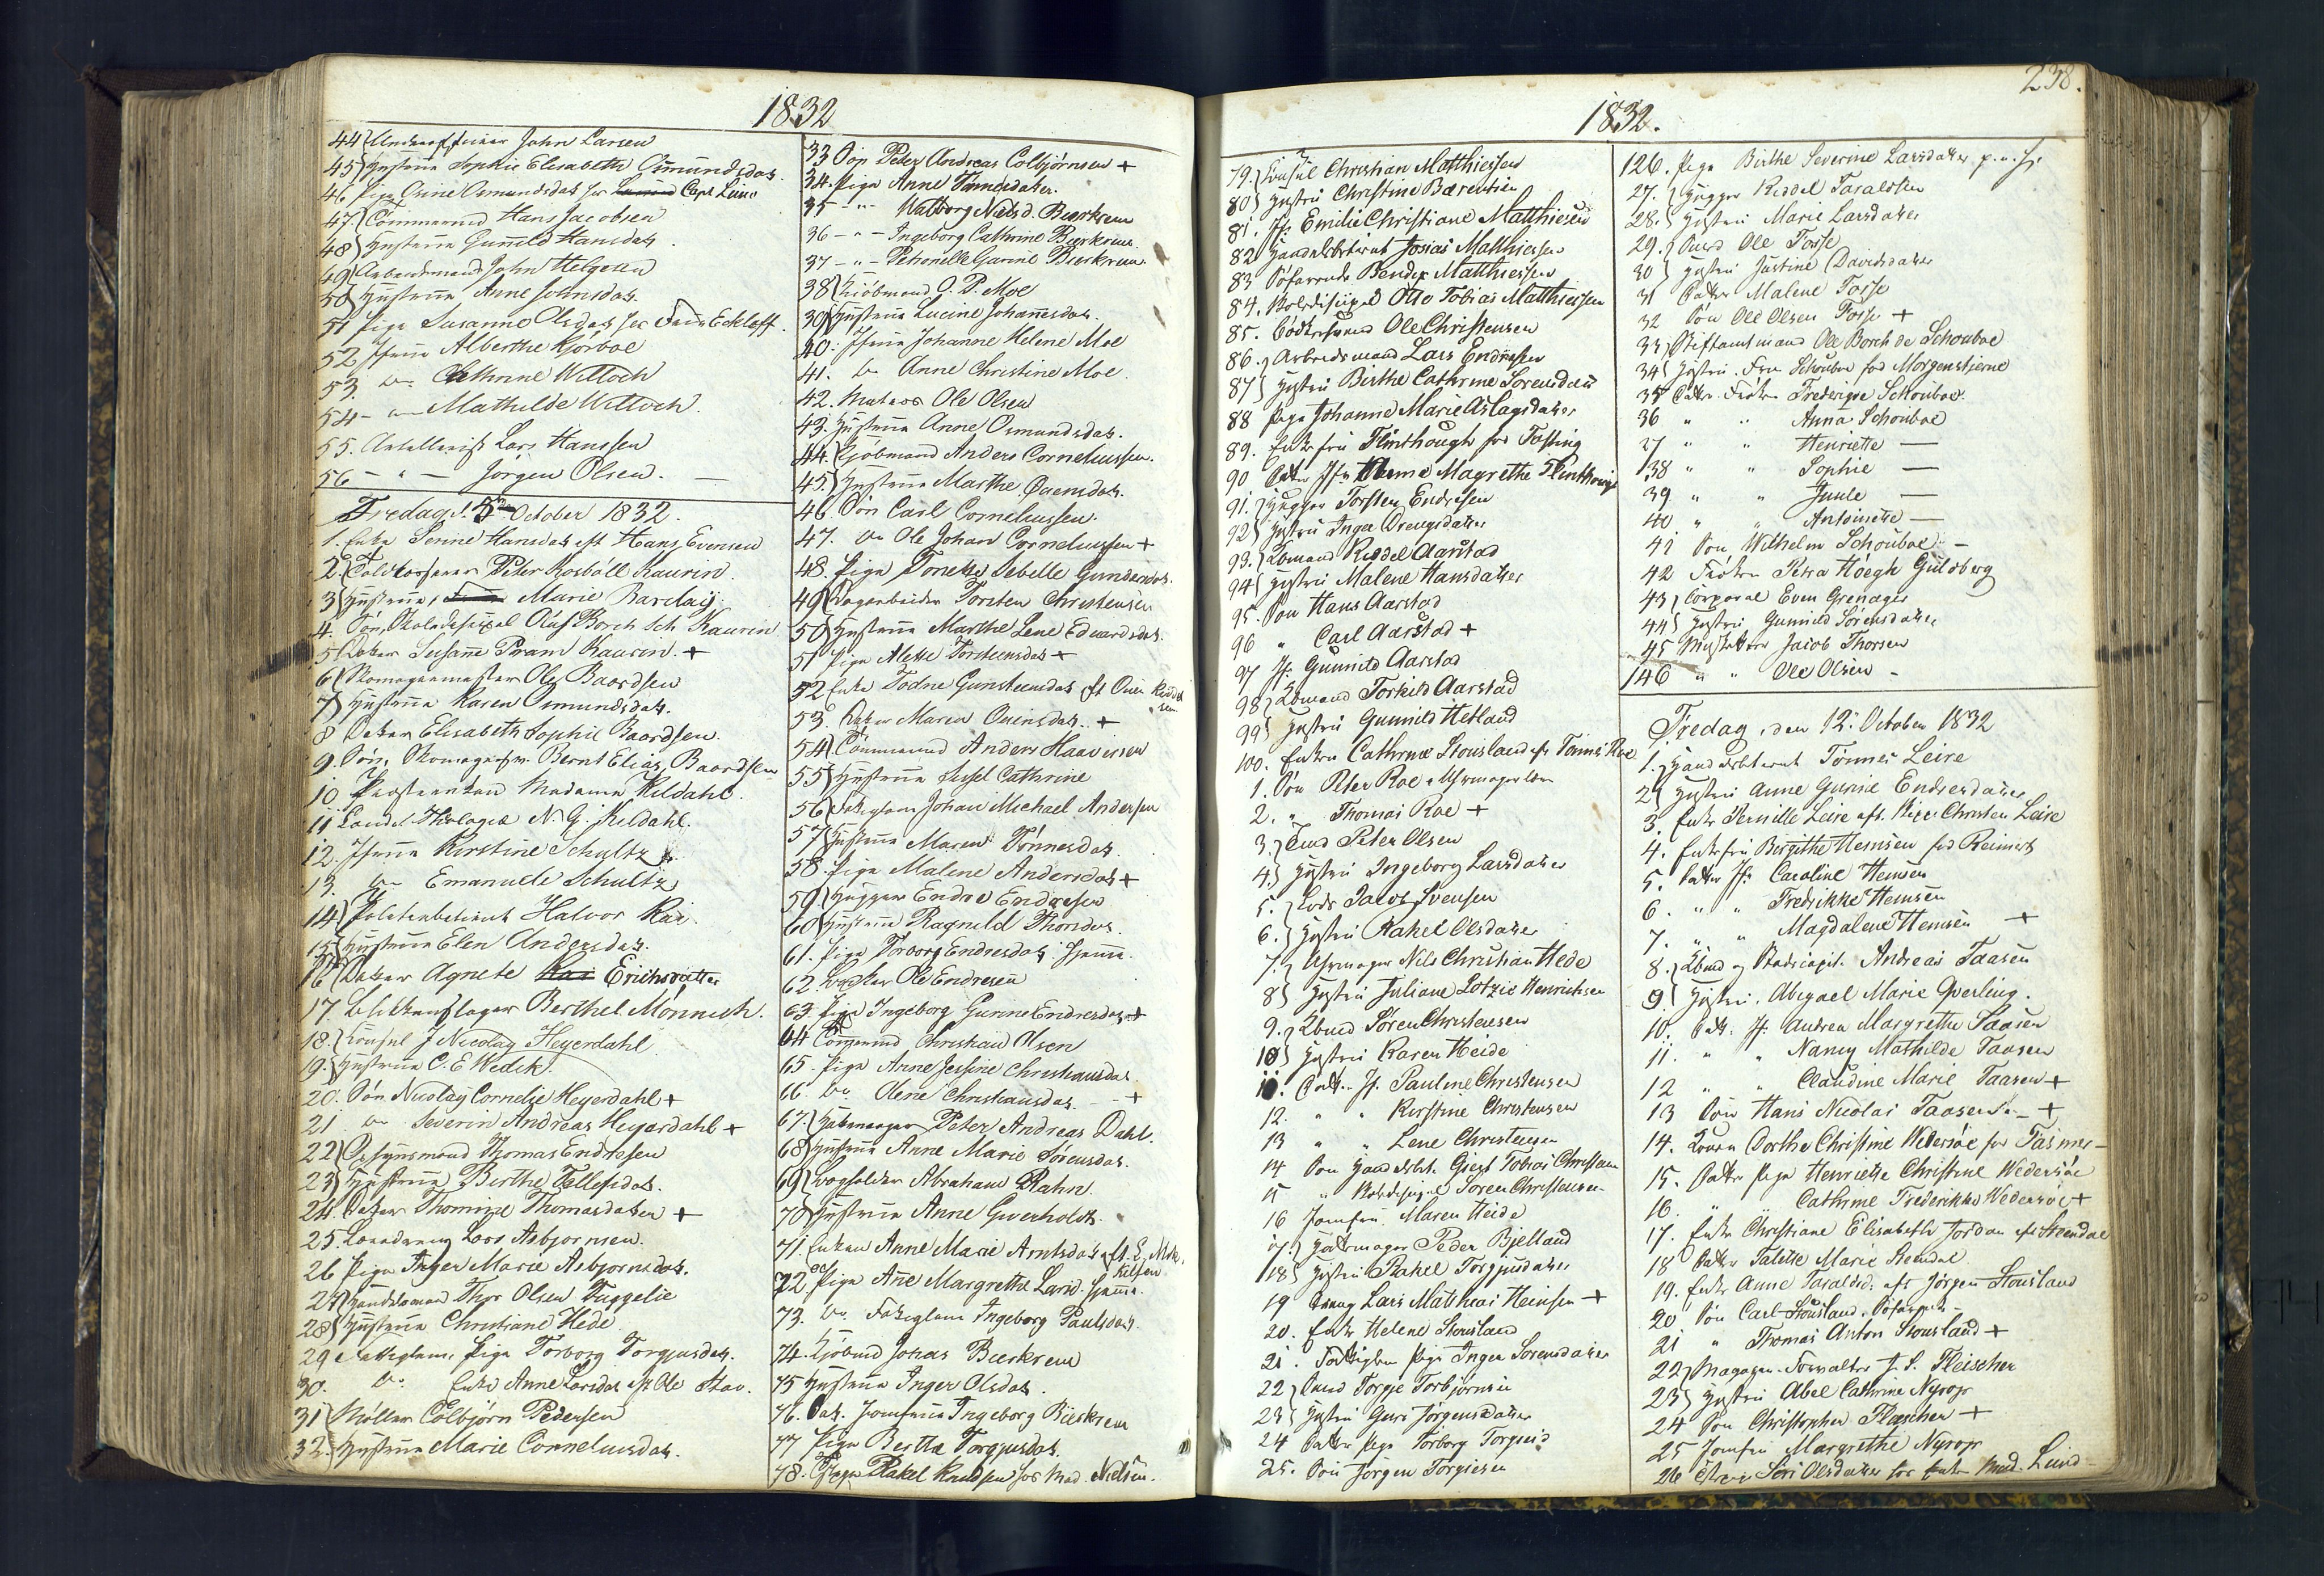 1832
44 Underofficeer John Larsen
45 Hustrue Sophie Elisabeth Osmundsdat.
46 Pige Osine Osmundsdat hos Capt Leire
47 Tømmermd Hans Jacobsen
48 Hustrue Gunnild Hansdat
49 Arbeidsmand John Helgesen
50 Hustrue Anne Johnsdat.
51 Pige Susanne Olsdat hos Eckloff.
52 Jfrue Alberthe Kjørboe
53 do Cathrine Willoch
54 - Mathilde Willoch.
55. Artillerist Lars Hanssen
56 - " - Jørgen Olsen.
Fredag d. 5 October 1832.
1. Enke Senne Hansdat eft Hans Evensen
2. Toldkasserer Peter Rosbøll Kaurin.
3 Hustrue, Marie Barclay
4. Søn, Skoledisipel Oluf Borch Sch. Kaurin
5 Datter Susanne Pram Kaurin. +
6 Skomagermester Ole Baardsen
7 Hustrue Karen Osmundsdat.
8 Datter Elisabeth Sophie Baardsen.
9. Søn, Skomagersv. Bernt Elias Baardsen
10 Madame Kildahl.
11 Candid. Theologiæ N. G. Kildahl.
12. Jfrue Kirstine Schultz
13. do Emanuele Schultz
14 Toldbetient Halvor Kai
15 Hustrue Elen Andersdat.
16 Datter Agnete Erichsdatter
17. Blikkenslager Berthel Mønnich.
18. Konsul J Nicolay Heyerdahl
19. Hustrue C. E. Wedek
20. Søn Nicolay Cornelie Heyerdahl +
21 do Severin Andreas Heyerdahl +
22 Opsynsmand Thomas Endresen
23 Hustrue Berthe Tellefsdat.
24. Datter Thomine Thomasdatter +
25. Lars Asbjørnsen.
26 Pige Inger Marie Asbjørnsdat.
27 Handelsmand Thor Olsen Fuggelie
28 Hustrue Christiane Hede
29 Fattiglem, Pige Torborg Torgjusdat.
30. do Enke Anne Larsdat eft Ole Stav.
31 Møller Colbjørn Pedersen
32. Hustrue Marie Corneliusdat.
33 Søn Peter Andreas Colbjørnsen +
34. Pige Anne Tønnesdatter.
35 - " - Walborg Nielsd. Bierkrem
36 - " - Ingeborg Cathrine Bierkrem.
37 - " - Petronelle Garine Bierkrem.
38 Kiøbmand O. P. Moe
39 Hustrue Lucine Johannesdat.
40. Jfrue Johanne Helene Moe
41. do Anne Christine Moe.
42. Matros Ole Olsen
43. Hustrue Anne Osmundsdat.
44. Kjøbmand Anders Corneliussen.
45. Hustrue Marthe Ovensdat.
46. Søn Carl Corneliussen.
47. do Ole Johan Corneliussen +
48. Pige Tonette Sebelle Gundersdat.
49 Torsten Christensen
50 Hustrue Marthe Lene Edvardsdat.
51 Pige Mette Torstensdat +
52 Enke Todne Gunsteensdat eft Ouen
53. Datter Maren Ouensdat. +
54 Tømmermd Anders Haaversen
55 Hustrue Sissel Cathrine
56 Fattiglem Johan Michael Andersen
57 Hustrue Maren Tønnesdat.
58. Pige Malene Andersdat +
59. Hugger Endre Endresen
60 Hustrue Ragnild Thorsdat.
61. Pige Torborg Endresdat hjemme.
62. Ole Endresen
63. Pige Ingeborg Gurine Endresdat +
64 Tømmermd Christian Olsen
65. Pige Anne Jessine Christiansdat.
66. do Olene Christiansdat. - - +
67. Hattemager Peter Andreas Dahl.
68 Hustrue Anne Marie Sørensdat.
69 Abraham Rahn.
70 Hustrue Anne Gverholdt.
71. Enken Anne Marie Arntsdat eft. E. Mik-
kelsen
72. Pige Ane Margrethe Larsd. hjemme.
73. do Fattiglem Ingeborg Paulsdat.
74. Kjøbmd Jonas Bierkrem
75 Hustrue Inger Olsdat.
76. Dat. Jomfrue Ingeborg Bierkrem
77 Pige Bertha Torgjusdat.
78. Rakel Knudsen hos Mad. Nielsen.
238.
1832.
79. Consul Christian Matthiessen
80 Hustru Christine Bærentsen
81. Jfr. Emilie Christiane Matthiesen
82 Handelsbetient Josias Matthiessen
83 Søfarende Bendix Matthiessen
84. Skoledisipel Otto Tobias Matthiessen
85. Bødkersvend Ole Christensen
86. Arbeidsmand Lars Endresen
87 Hustru Birthe Cathrine Sørensdatt
88 Pige Johanne Marie Aslagsdatter
89. Enkefru Flinthough fød Tosting
90 Datter Jfr Magrethe Flinthough
91. Hugger Torsten Endresen
92 Hustru Inger Drengsdatter
93. Kbmand Riddel Aarstad
94 Hustru Malene Hansdatter
95. Søn Hans Aarstad
96 " Carl Aarstad +
97 Jf. Gunnild Aarstad
98 Kbmand Torkild Aarstad
99 Hustru Gunnild Hetland
100. Enken Cathrine Stousland eft Tønnes Roe
1. Søn Peter Roe Uhrmagerlær
2. " Thomas Roe +
3. Peter Olsen
4. Hustru Ingeborg Larsdatter
5. Lods Jacob Svensen
6. Hustru Rakel Olsdatter
7. Uhrmager Nils Christian Hede
8 Hustru Juliane Lotzie Henrichsen
9. Kbmd Søren Christensen
10 Hustru Karen Heide
11. Datt. Jf. Pauline Christensen
12. " " Kirstine Christensen
13 " " Lene Christensen
14 Søn Handelsbt. Giert Tobias Christensen
15 " Skoledisipel Søren Christensen
16 Jomfru Maren Heide
17. Hattemager Peder Bjelland
118 Hustru Rakel Torgjusdatter
19 Dreng Lars Mathias Heinsen +
20. Enke Helene Stousland
21. Fattiglem Pige Inger Sørensdatter
22 Torgje Torbjørnsen
23 Hustru Guri Jørgensdatter
24 Datter Pige Torborg Torgusd
25. Søn Jørgen Torgiesen
126. Pige Birthe Severine Larsdatter p. v. H.
27. Hugger Riddel Taraldsen
28. Hustru Marie Larsdatter
29. Ole Fosse
30 Hustru Justine Davidsdatter
31 Datter Malene Fosse
32 Søn Ole Olsen Fosse +
33 Stiftamtmand Ole Borch de Schouboe
34 Hustru. Fru Schouboe fød Morgenstierne
35 Datter Frøken Frederique Schouboe.
36 " " Anna Schouboe
37 " " Henriette —
138 " " Sophie —
39 " " Juule —
40 " " Antoinette —
41 Søn Wilhelm Schouboe. -
42 Frøken Petra Høegh Guldberg
43 Corporal Even Grenager
44 Hustru Gunnild Sørensdatter
45 Musketter Jacob Thorsen
146 " " Ole Olsen -
Fredag, den 12. October 1832
1. Handelsbetient Tønnes Leire
2 Hustru Anne Gurine Endresdatter
3. Enke Pernille Leire eft. Christen Leire
4. Enkefru Birgithe Hemsen fød Reimers
5. Datter Jf. Caroline Hemsen
6. " " Fredrikke Hemsen
7. " " Magdalene Hemsen +
8. Kbmd og Stadscapit. Andreas Taasen
9 Hustru. Abigael Marie Qverling.
10. Datt. Jf. Andrea Margrethe Taasen
11. " " Nancy Mathilde Taasen
12 " " Claudine Marie Taasen +
13 Søn Hans Nicolai Taasen - +
14. Dorthe Christine Wedersøe fød Fasmer -
15. Datter Pige Henriette Christine Wedersøe
16. " " Cathrine Frederikke Wedersøe +
17. Enke Christiane Elisabeth Jordan eft Steendal
18 Datter Talette Marie Stendal
19. Enke Anne Taraldsd. eft Jørgen Stousland
20 Søn Carl Stousland, Søfarende -
21 " Thomas Anton Stousland +
22 Magazin-Forvalter J. S. Fleischer
23 Hustru Abel Cathrine Nyrop
24 Søn Christopher Flæscher +
25 Jomfru Margrethe Nyrop
26 Siri Olsdatter hos Mad. Lund